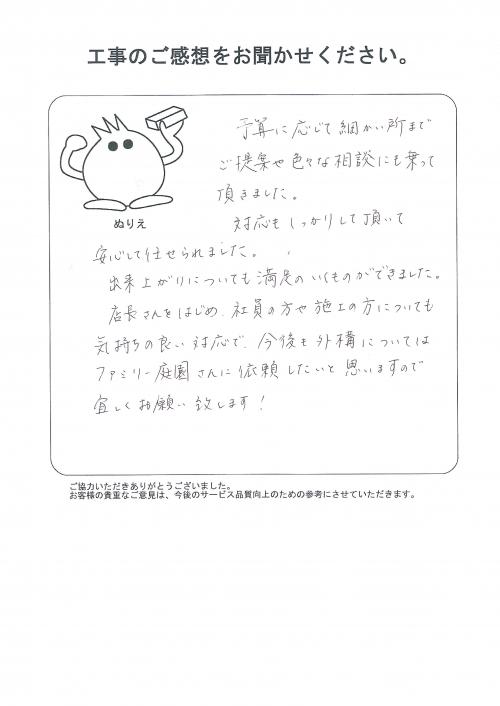 工事のご感想をお聞かせください。
予算に応じて細かい所まで
ご提案や色々な相談にも乗って
頂きました。
ぬりえ
対応もしっかりして頂いて
安心して任せられました。
出来上がりについても満足のいくものができました。
店長さんをはじめ、社員の方や施工の方についても
気持ちの良い対応で、今後も外構については
ファミリー庭園さんに依頼したいと思いますので
宜しくお願い致します!
ご協力いただきありがとうございました。
お客様の貴重なご意見は、今後のサービス品質向上のための参考にさせていただきます。